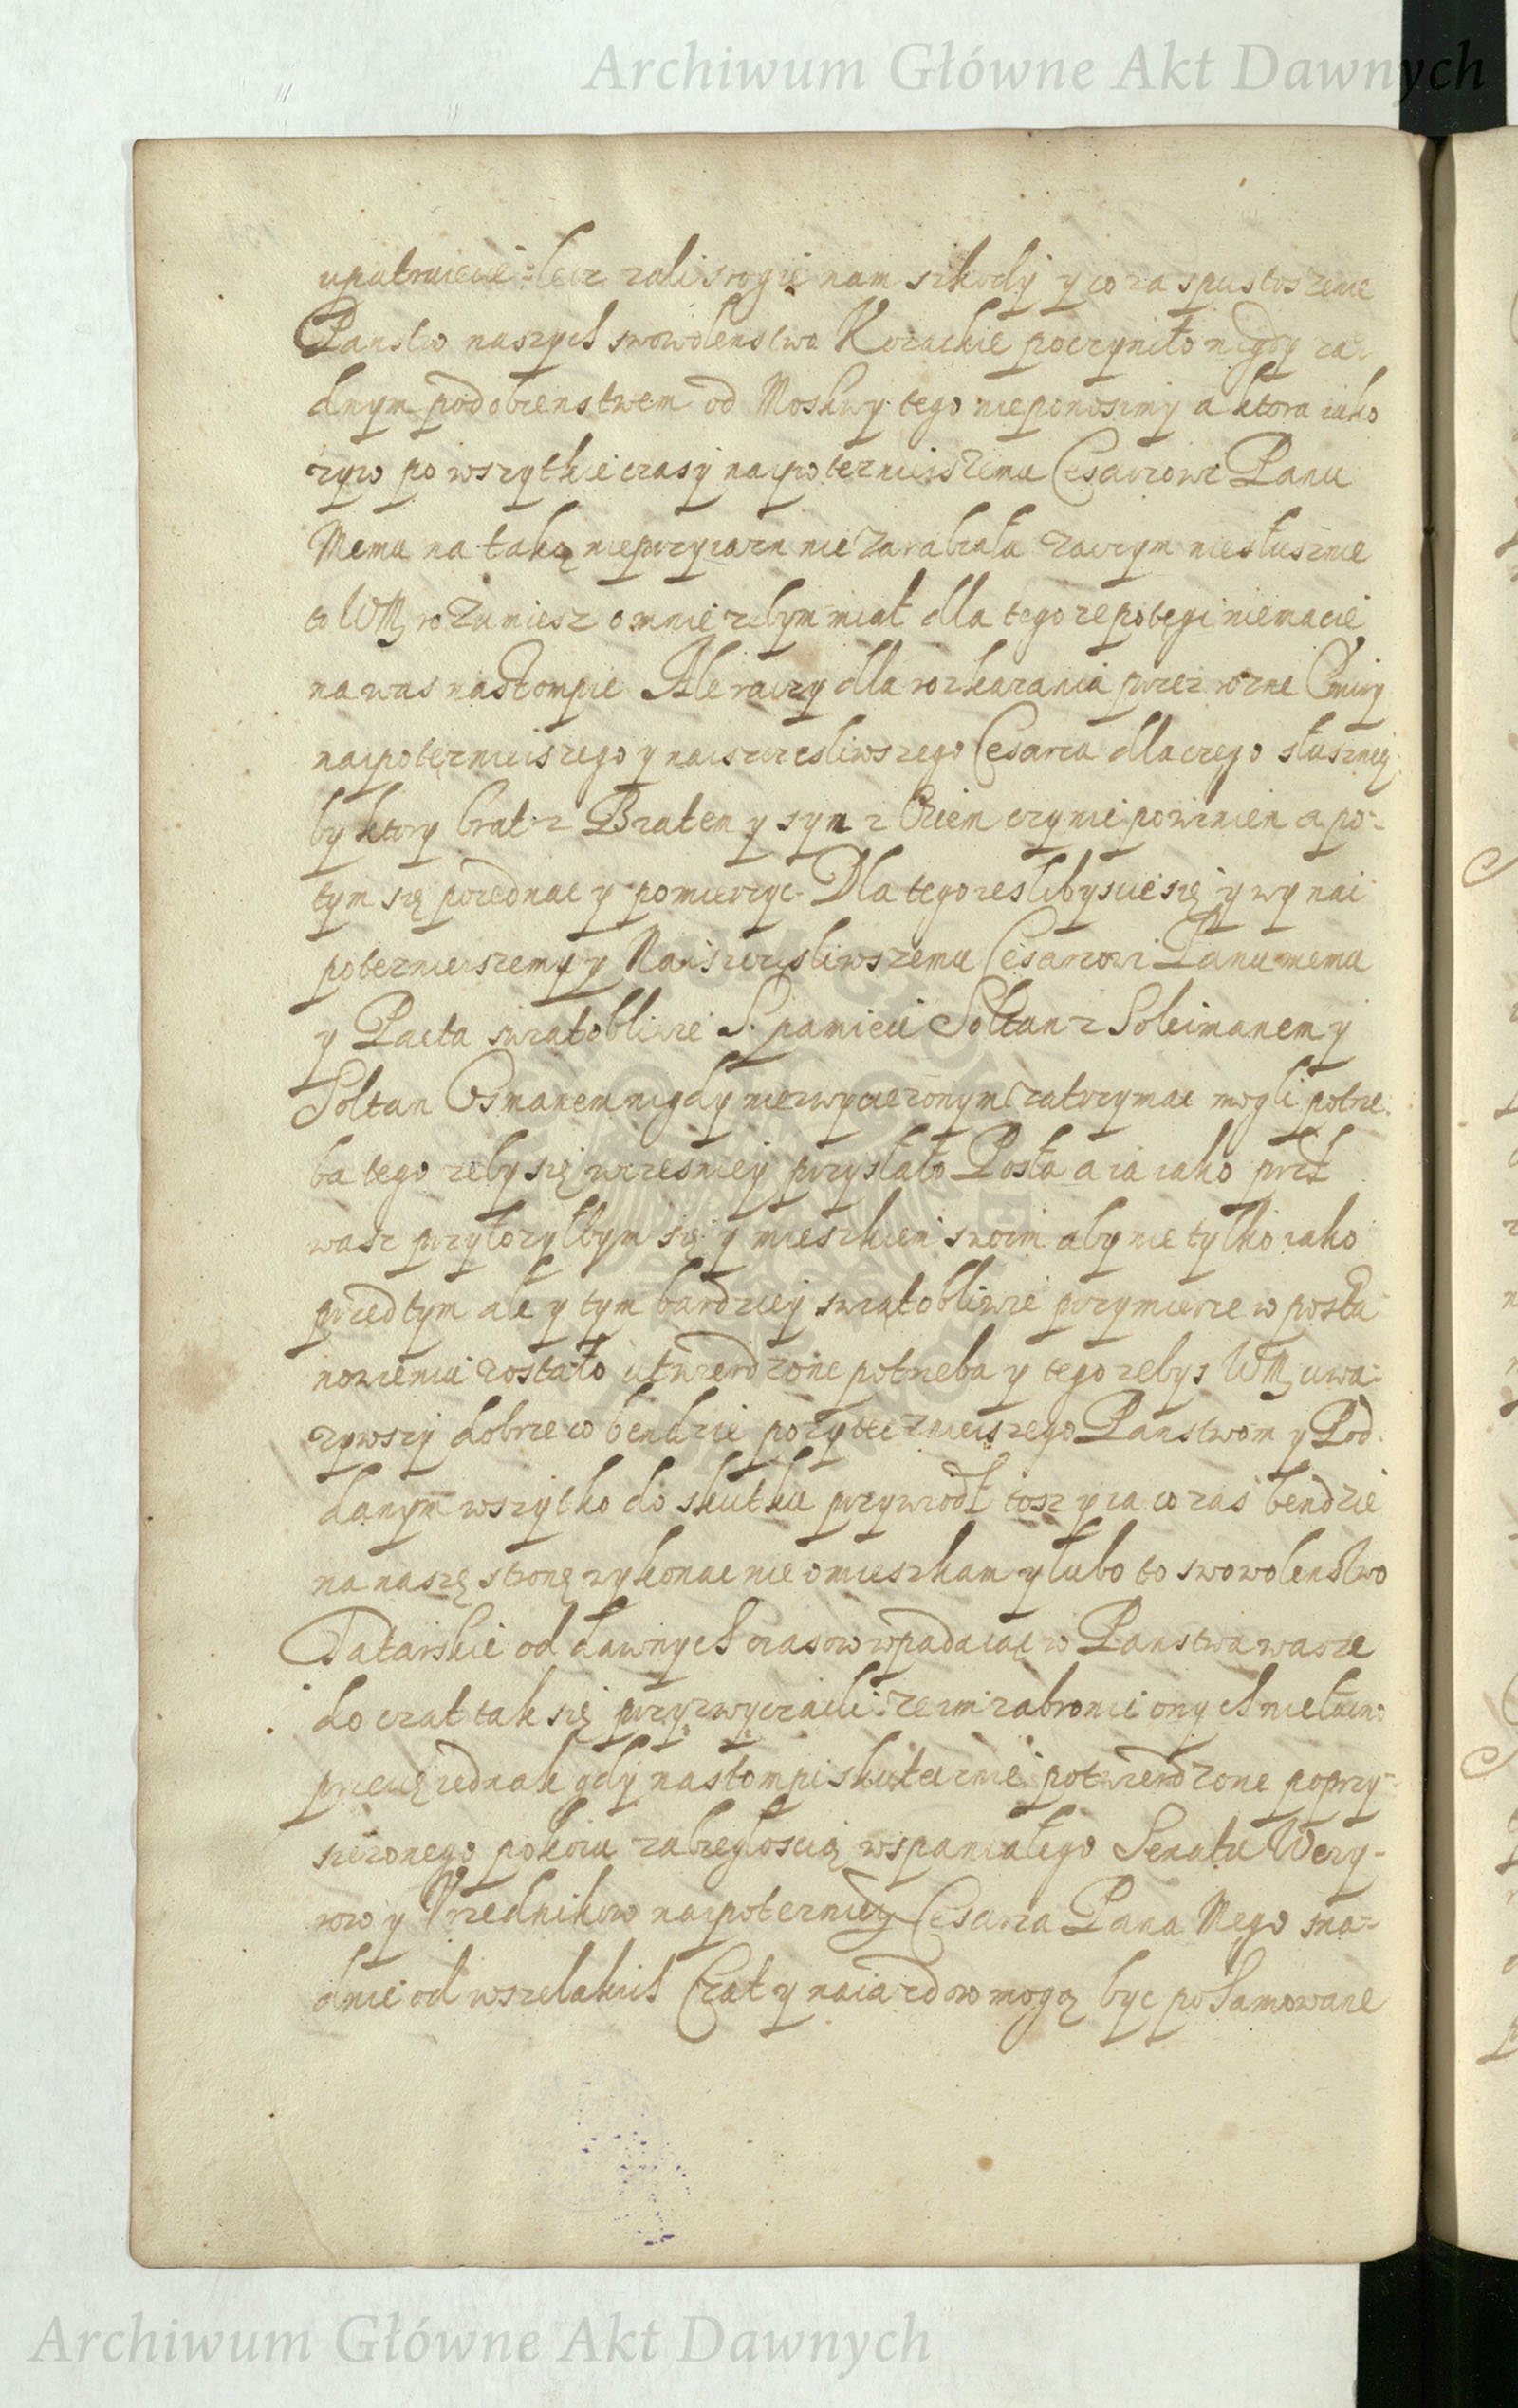 Archiwum Główne Akt Dawnych
upatruiecie: lecz zali srogie nam szkody y co za spustoszenie
Panstw naszych swowolenstwo Kozackie poczyniło nigdy zad
dnym podobienstwem od Moskwy tego nieponosimy a ktora iako
zyw po wszytkie czasy naypotezniejszemu Cesarzowi Panu
Memu na taką nieprzyiazn nie zarabiała zaczym niesłusznie
to WM rozumiesz o mnie zebym miał dla tego ze potegi niemacie
na was nastompic Ale raczy dla rozkazania przez rozne Emiry
naypotęznieiszego y naiszczesliwszego Cesarza dlaczego słuszniej
by ktory brat z Bratem y syn z Oicem czynic powinien a po-
tym się poiednac y pomierzyc. Dla tego iesli byscie się y wy nai
potezniejszemu y Naiszczesliwszemu Cesarzowi Panu memu
y Pacta swiatobliwie S. pamieci Sołtan z Soleimanem y
Sołtan Osmanem nigdy niezwyciezonym zatrzymac mogli potrze
ba tego zeby się wczesniey przysłało Posła a ia iako przed
wasz przyłozyłbym się y mieszkiem swoim aby nie tylko iako
przedtym ale y tym bardziey swiatobliwie przymierze w posta
nowieniu zostało utwierdzone potrzeba y tego zebys WM uwa-
zywszy dobrze co bendzie pozyteczneiszego Panstwom y Pod
danym wszytko do skutku przywiodł tosz y ia co zas bendzie
na naszę stronę wykonac nie omieszkam y lubo to swowolenstwo
Tatarskie od dawnych czasow wpadaiąc w Panstwa wasze
do czat tak się przyzwyczaili: ze im zabronic onych nie łacn:
przecię iednak gdy nastompi skutecznie potwierdzone poprzy-
siezonego pokoiu zabiegłoscią wspaniałego Senatu Wezy-
row y Vrzednikow naypotezniey Cesarza Pana Mego sna-
dnie od wszelakich Czat y naiazdow mogą byc pohamowane
Archiwum Główne Akt Dawnych